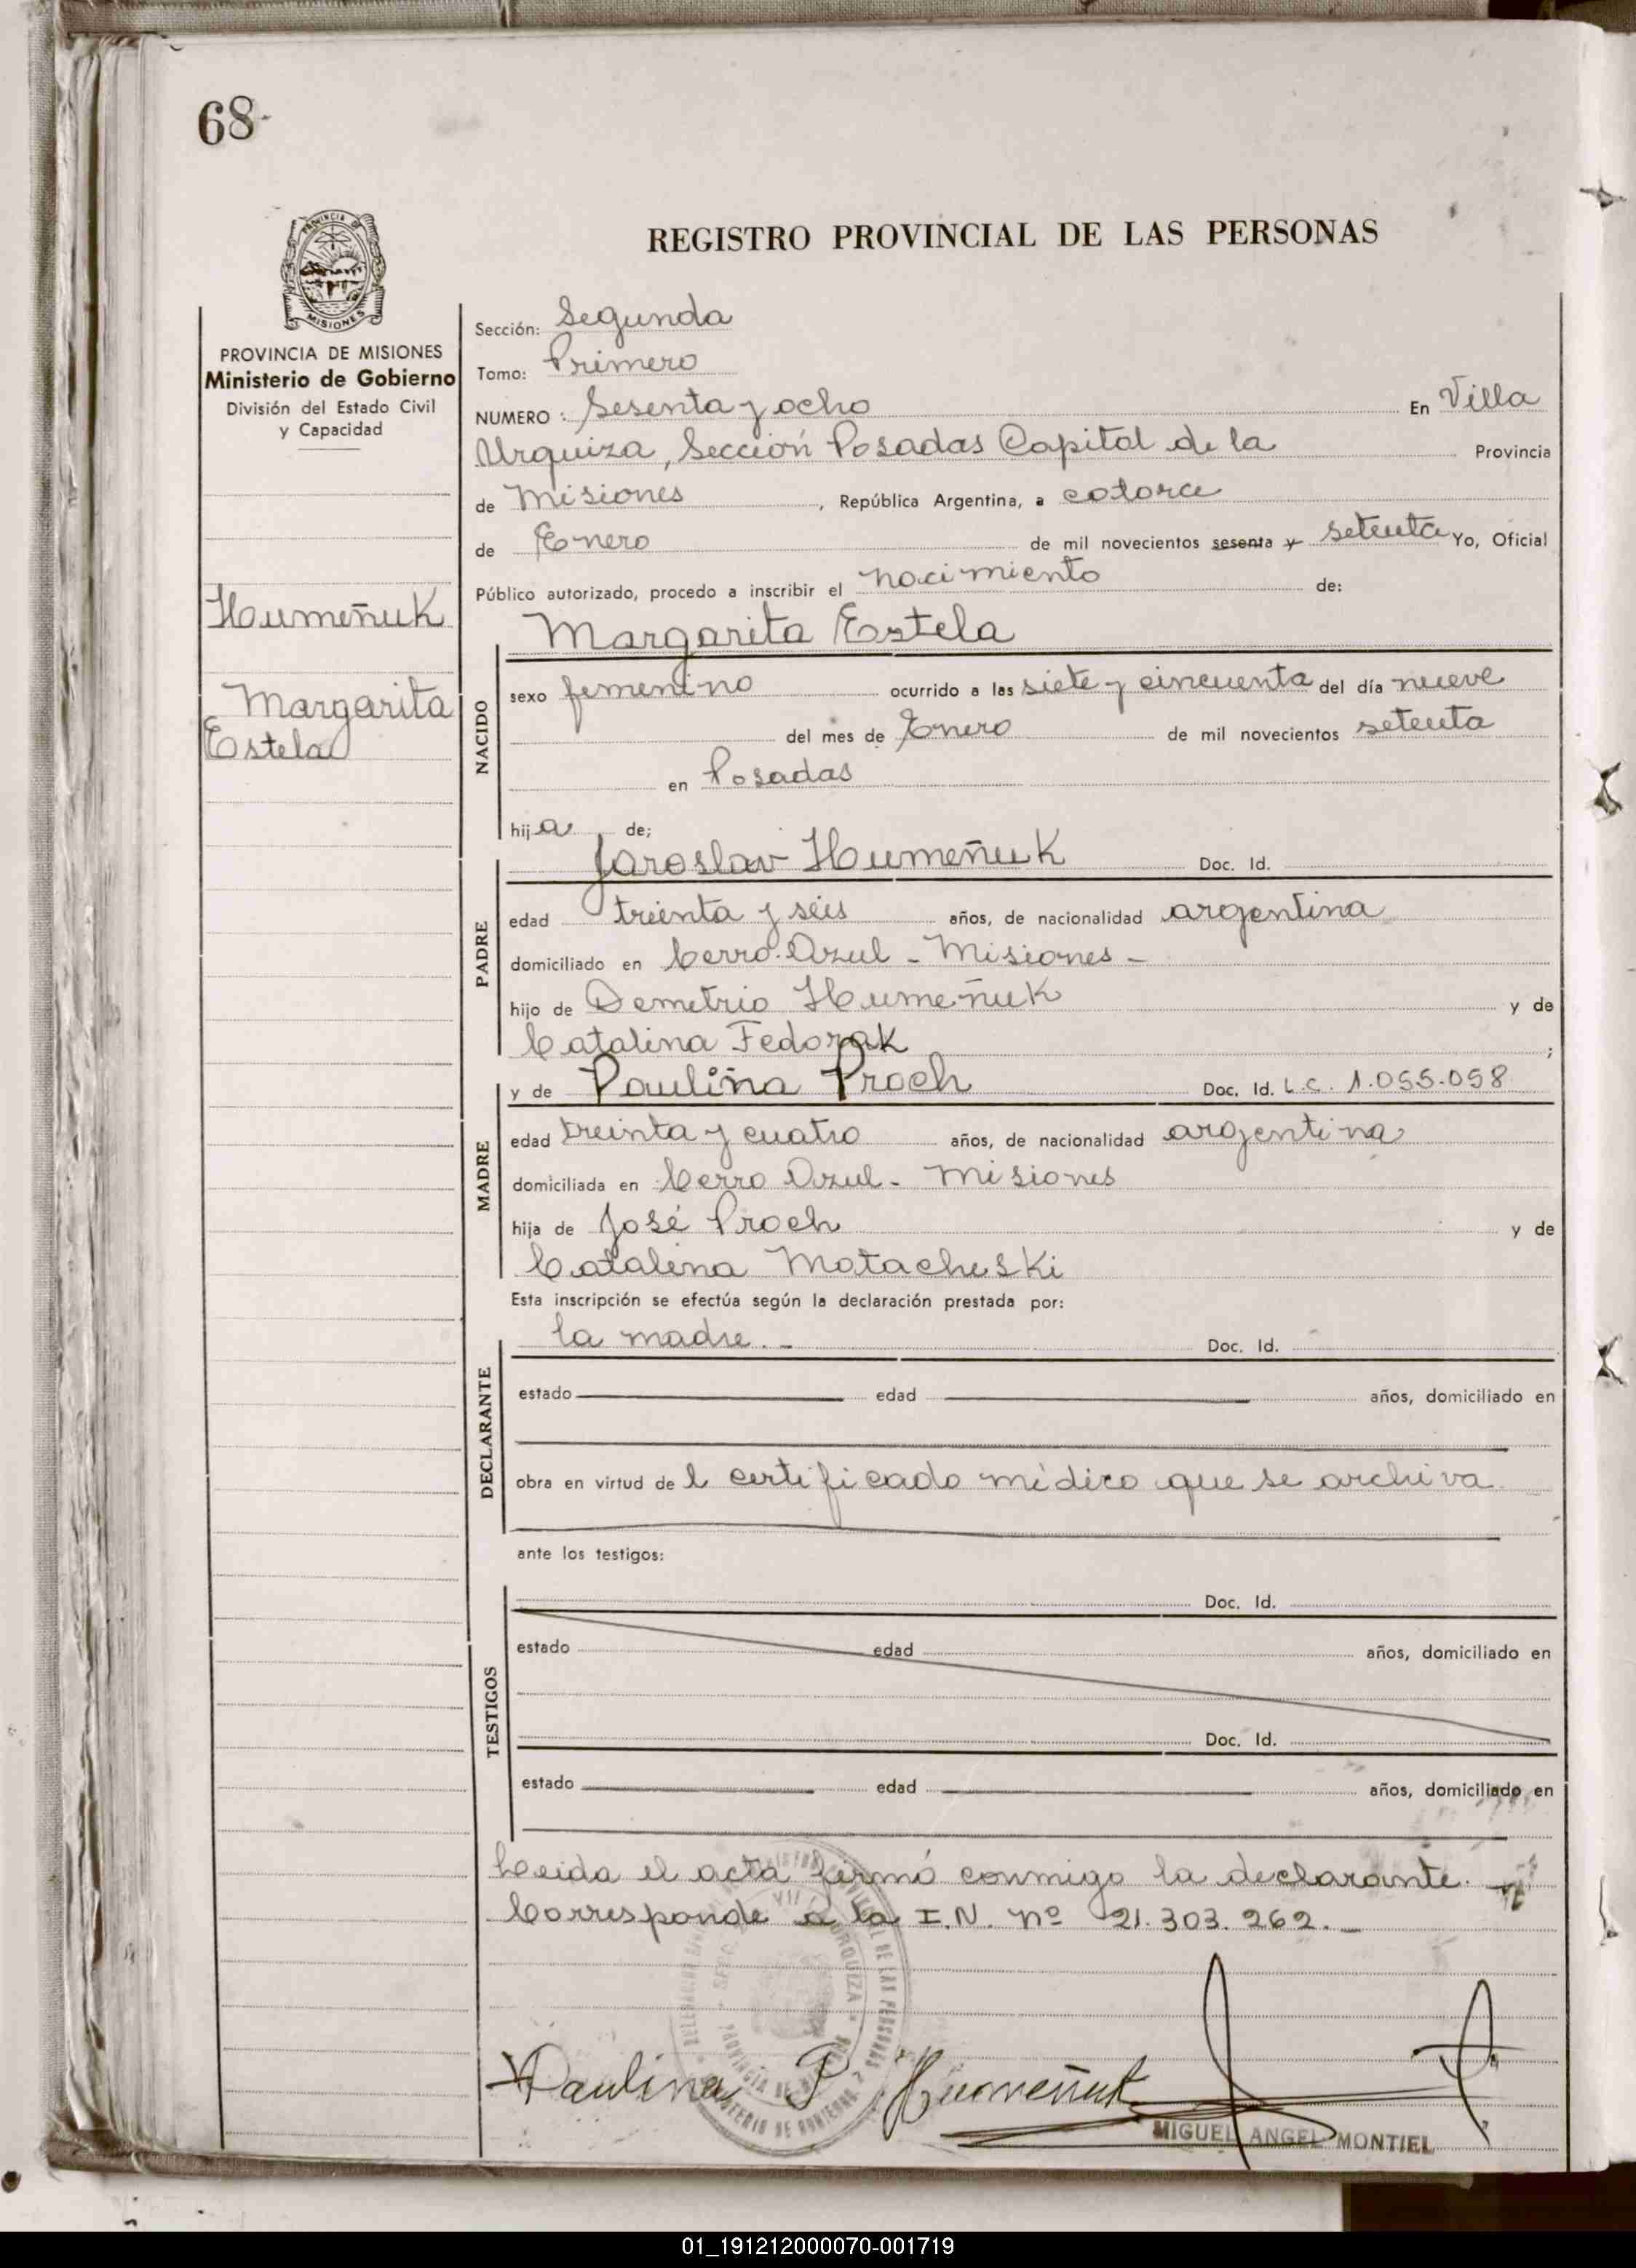 68-
PROVINCIA DE
MISIONES
REGISTRO PROVINCIAL DE LAS PERSONAS
PROVINCIA DE MISIONES
Ministerio de Gobierno
División del Estado Civil
y Capacidad
Humeñuk
Margarita
Estela
Sección: Segunda
Tomo: Primero
NUMERO: Sesenta y ocho En Villa
Urquiza, Sección Posadas Capital de la Provincia
de Misiones, República Argentina, a catorce
de Enero de mil novecientos sesenta y setenta Yo, Oficial
Público autorizado, procedo a inscribir el nacimiento de:
NACIDO
Margarita Estela
sexo femenino ocurrido a las siete y cincuenta del día nueve
del mes de Enero de mil novecientos setenta
en Posadas
hija de;
PADRE
Jaroslav Humeñuk Doc. Id.
edad treinta y seis años, de nacionalidad argentina
domiciliado en Cerro Azul - Misiones -
hijo de Demetrio Humeñuk y de
Catalina Fedorak ;
MADRE
y de Paulina Proch Doc. Id. L.C. 1.055.058
edad treinta y cuatro años, de nacionalidad argentina
domiciliada en Cerro Azul - Misiones
hija de José Proch y de
Catalina Matacheski
Esta inscripción se efectúa según la declaración prestada por:
DECLARANTE
la madre. - Doc. Id.
estado edad años, domiciliado en
obra en virtud del certificado médico que se archiva
ante los testigos:
TESTIGOS
Doc. Id.
estado edad años, domiciliado en
Doc. Id.
estado edad años, domiciliado en
Leida el acta firmó conmigo la declarante. -
Corresponde a la I.N. nº 21.303.262. -
Paulina P Humeñuk
MIGUEL ANGEL MONTIEL
01_191212000070-001719